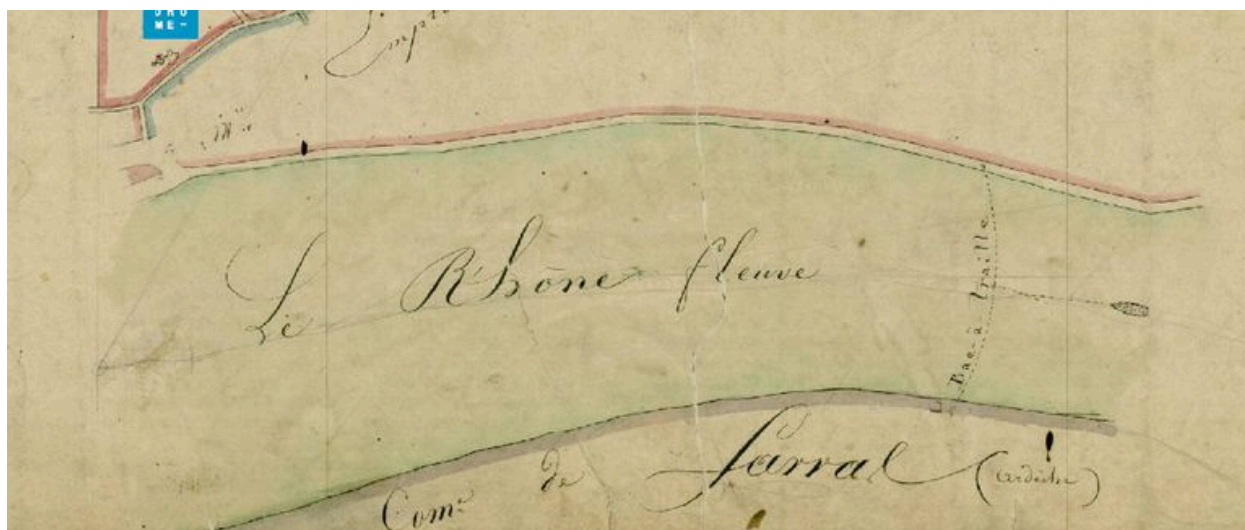 ME-
Le Rhône fleuve
Bac à traille
Com.ne de Sarral (ardèche)